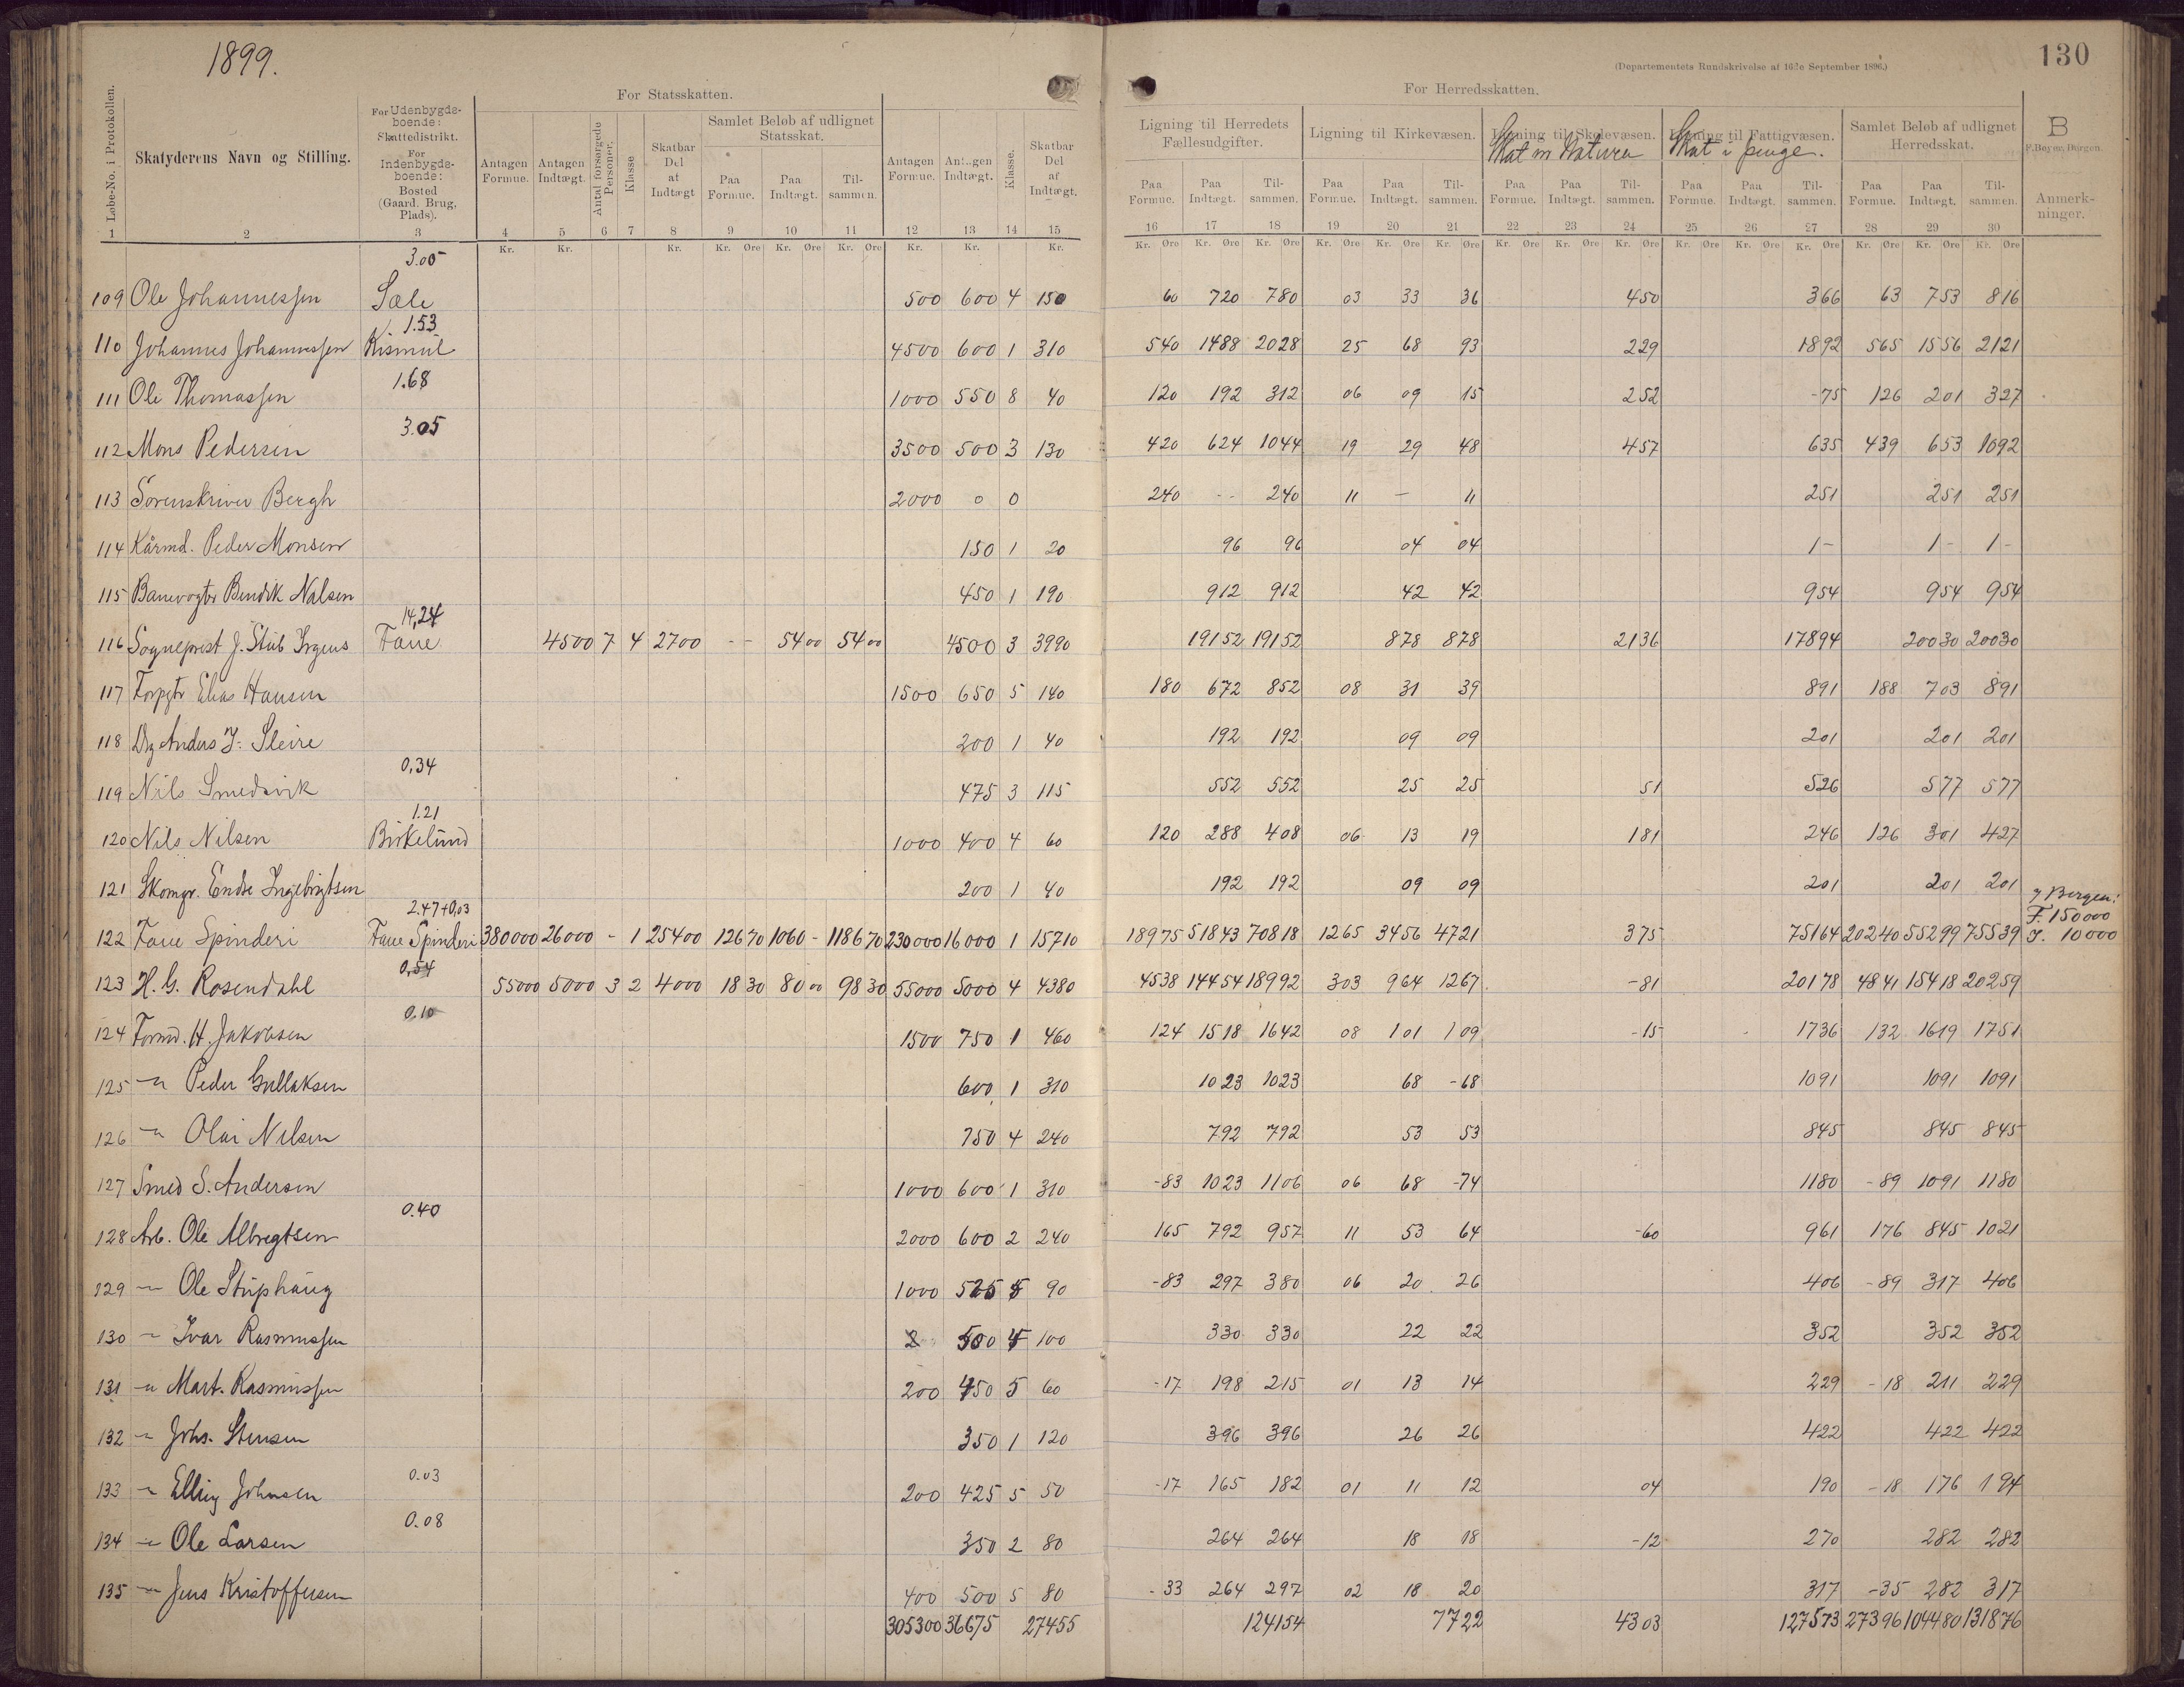 1899.
130
(Departementets Rundskrivelse af 16de September 1896.)
For Statsskatten. For Herredsskatten.
Løbe-No. i Protokollen. Skatyderens Navn og Stilling. For Udenbygdsboende: Skattedistrikt. For Indenbygdsboende: Bosted (Gaard, Brug, Plads). Antagen Formue. Antagen Indtægt. Antal forsørgede Personer. Klasse Skatbar Del at Indtægt Samlet Beløb af udlignet Statsskat. Paa Formue. Paa Indtægt. Tilsammen. Antagen Formue. Antagen Indtægt. Klasse. Skatbar Del af Indtægt.
Ligning til Herredets Fællesudgifter. Ligning til Kirkevæsen. Ligning til Skolevæsen. Skat in Natura Ligning til Fattigvæsen. Skat i penge. Samlet Beløb af udlignet Herredsskat. B F. Beyer, Bergen. Anmerkninger.
Paa Formue. Paa Indtægt. Tilsammen. Paa Formue. Paa Indtægt. Tilsammen. Paa Formue. Paa Indtægt. Tilsammen. Paa Formue. Paa Indtægt. Tilsammen. Paa Formue. Paa Indtægt. Tilsammen.
1 2 3 4 5 6 7 8 9 10 11 12 13 14 15 16 17 18 19 20 21 22 23 24 25 26 27 28 29 30
Kr. Kr. Kr. Kr. Øre Kr. Øre Kr. Øre Kr. Kr. Kr. Kr. Øre Kr. Øre Kr. Øre Kr. Øre Kr. Øre Kr. Øre Kr. Øre Kr. Øre Kr. Øre Kr. Øre Kr. Øre Kr. Øre Kr. Øre Kr. Øre Kr. Øre
3.05
109 Ole Johannessen Sæle 500 600 4 150 60 720 780 03 33 36 450 366 63 753 816
1.53
110 Johannes Johannessen Kismul 4500 600 1 310 540 1488 2028 25 68 93 229 1892 565 1556 2121
1.68
111 Ole Thomassen 1000 550 8 40 120 192 312 06 09 15 252 -75 126 201 327
3.05
112 Mons Pedersen 3500 500 3 130 420 624 1044 19 29 48 457 635 439 653 1092
113 Sorenskriver Bergh 2000 0 0 240 -- 240 11 - 11 251 251 251
114 Kårmd. Peder Monsen 150 1 20 96 96 04 04 1- 1- 1-
115 Banevogter Bendik Nilsen 450 1 190 912 912 42 42 954 954 954
14,24
116 Sogneprest J. Stub Irgens Fane 4500 7 4 2700 -- 5400 5400 4500 3 3990 19152 19152 878 878 2136 17894 20030 20030
117 Forpgtr Elias Hansen 1500 650 5 140 180 672 852 08 31 39 891 188 703 891
118 Drg Anders J. Sleire 200 1 40 192 192 09 09 201 201 201
0,34
119 Nils Smedsvik 475 3 115 552 552 25 25 51 526 577 577
1.21
120 Nils Nilsen Birkelund 1000 400 4 60 120 288 408 06 13 19 181 246 126 301 427
121 Skomgr. Endre Ingebrigtsen 200 1 40 192 192 09 09 201 201 201
2.47+0,03 I Bergen: F. 150000
122 Fane Spinderi Fane Spinderi 380000 26000 - 1 25400 12670 1060- 118670 230000 16000 1 15710 18975 51843 70818 1265 3456 4721 375 75164 20240 55299 75539 I. 10000
0,54
123 H. G. Rosendahl 55000 5000 3 2 4000 1830 8000 9830 55000 5000 4 4380 4538 14454 18992 303 964 1267 -81 20178 4841 15418 20259
0.10
124 Formd. H. Jakobsen 1500 750 1 460 124 1518 1642 08 101 109 -15 1736 132 1619 1751
125 -"- Peder Gullaksen 600 1 310 1023 1023 68 -68 1091 1091 1091
126 -"- Olai Nilsen 750 4 240 792 792 53 53 845 845 845
127 Smed S. Andersen 1000 600 1 310 -83 1023 1106 06 68 -74 1180 -89 1091 1180
0.40
128 Arb. Ole Albregtsen 2000 600 2 240 165 792 957 11 53 64 -60 961 176 845 1021
129 -"- Ole Stuphaug 1000 525 5 90 -83 297 380 06 20 26 406 -89 317 406
130 -"- Ivar Rasmussen 500 4 100 330 330 22 22 352 352 352
131 -"- Mart. Rasmussen 200 450 5 60 -17 198 215 01 13 14 229 -18 211 229
132 -"- Johs. Stensen 350 1 120 396 396 26 26 422 422 422
0.03
133 -"- Elling Johnsen 200 425 5 50 -17 165 182 01 11 12 04 190 -18 176 194
0.08
134 -"- Ole Larsen 350 2 80 264 264 18 18 -12 270 282 282
135 -"- Jens Kristoffersen 400 500 5 80 -33 264 297 02 18 20 317 -35 282 317
305300 36675 27455 124154 7722 4303 127573 27396 104480 131876